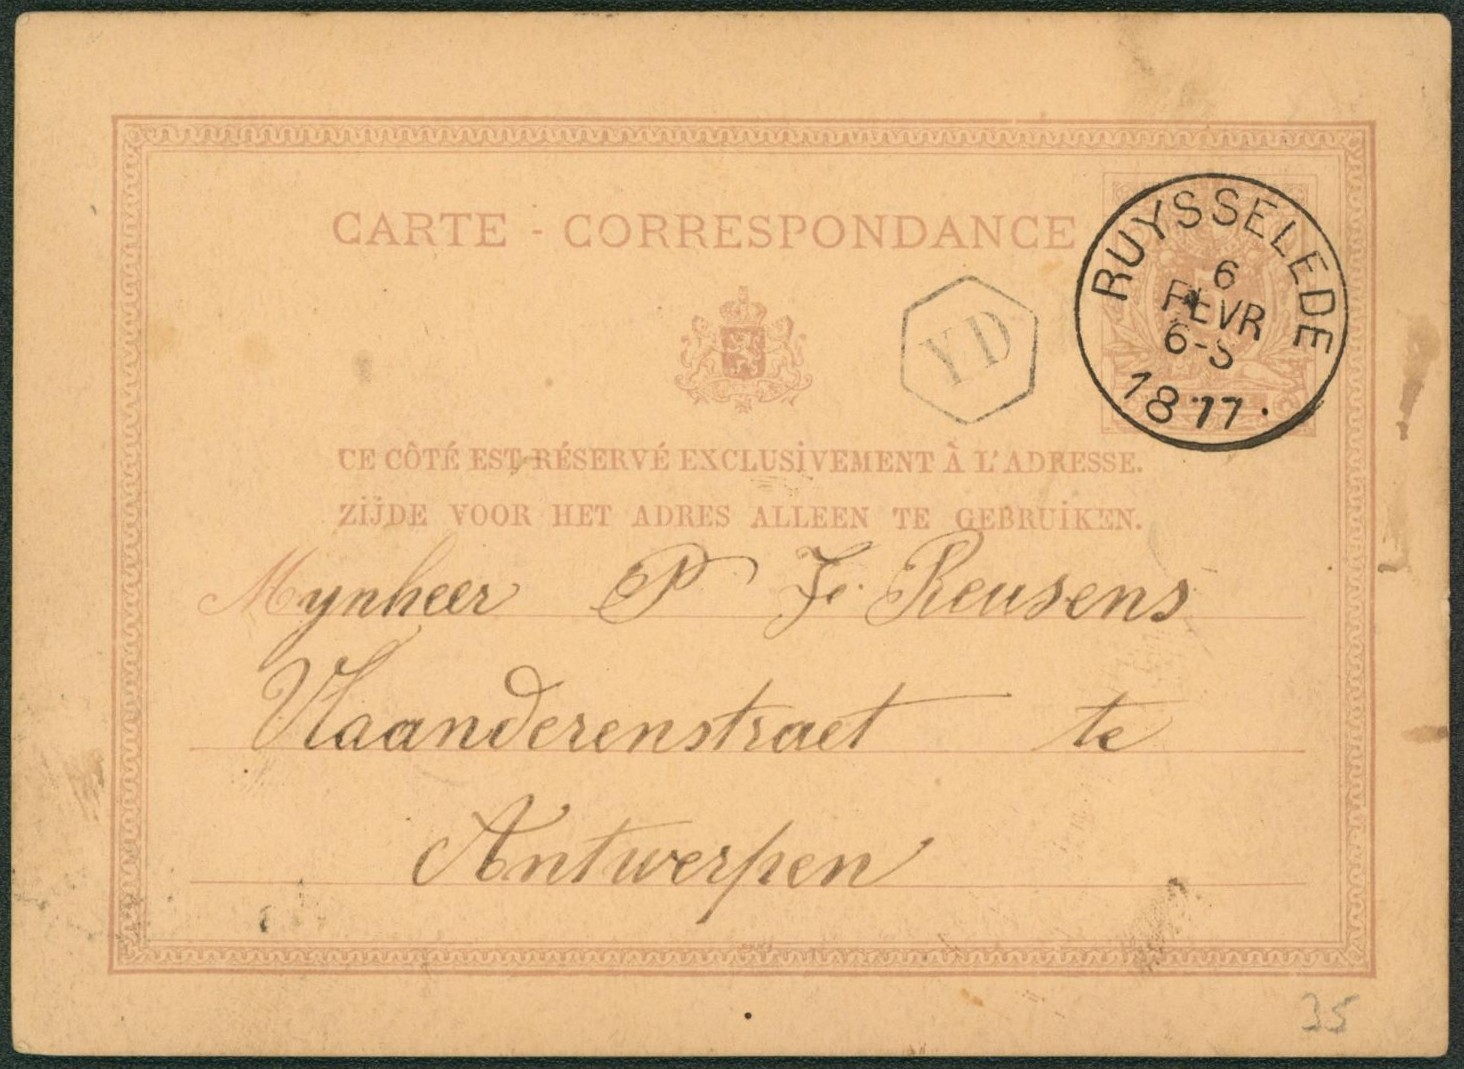 CARTE - CORRESPONDANCE
RUYSSELEDE
6
FEVR
6-S
1877
YD
CE CÔTÉ EST RÉSERVÉ EXCLUSIVEMENT À L'ADRESSE.
ZIJDE VOOR HET ADRES ALLEEN TE GEBRUIKEN.
Mynheer P J. Reusens
Vlaanderenstraet te
Antwerpen
35